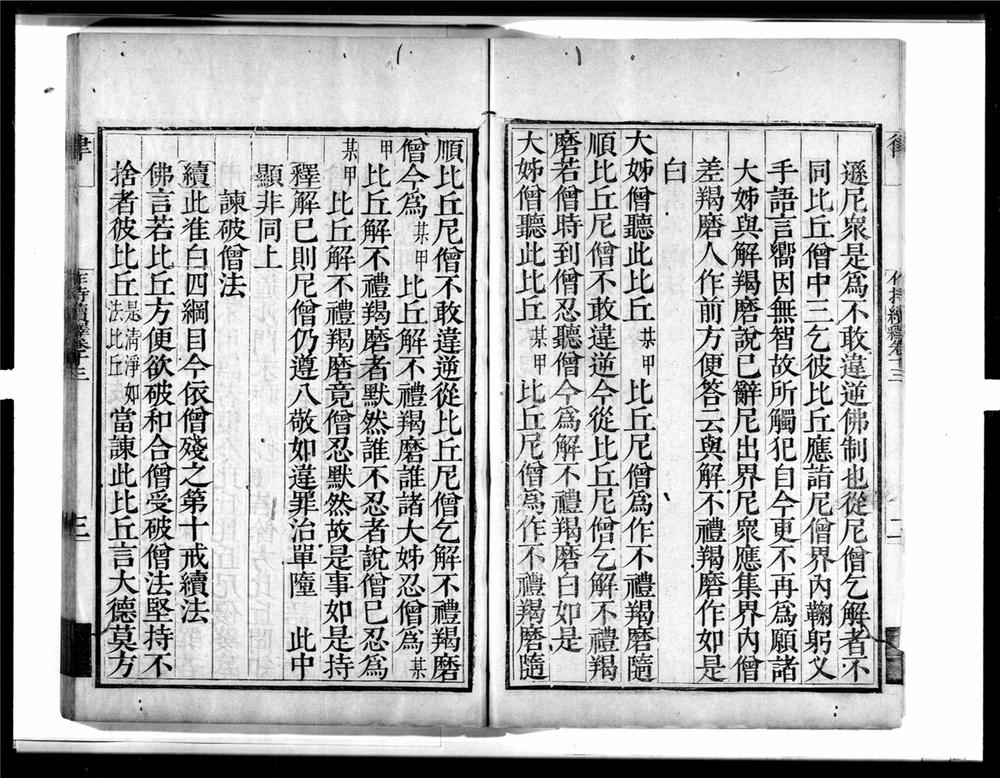 遜尼眾是為不敢違逆佛制也從尼僧乞解者不
同比丘僧中三乞彼比丘應詣尼僧界內鞠躬叉
手語言嚮因無智故所觸犯自今更不再為願諸
大姊與解羯磨說已辭尼出界尼眾應集界內僧
差羯磨人作前方便答云與解不禮羯磨作如是
白
大姊僧聽此比丘某甲比丘尼僧為作不禮羯磨隨
順比丘尼僧不敢違逆今從比丘尼僧乞解不禮羯
磨若僧時到僧忍聽僧今為解不禮羯磨白如是
大姊僧聽此比丘某甲比丘尼僧為作不禮羯磨隨
順比丘尼僧不敢違逆從比丘尼僧乞解不禮羯磨
僧今為某甲比丘解不禮羯磨誰諸大姊忍僧為某
甲比丘解不禮羯磨者默然誰不忍者說僧已忍為
某甲比丘解不禮羯磨竟僧忍默然故是事如是持
釋解已則尼僧仍遵八敬如違罪治單墮 此中
顯非同上
諫破僧法
續此准白四綱目今依僧殘之第十戒續法
佛言若比丘方便欲破和合僧受破僧法堅持不
捨者彼比丘是清淨如法比丘當諫此比丘言大德莫方